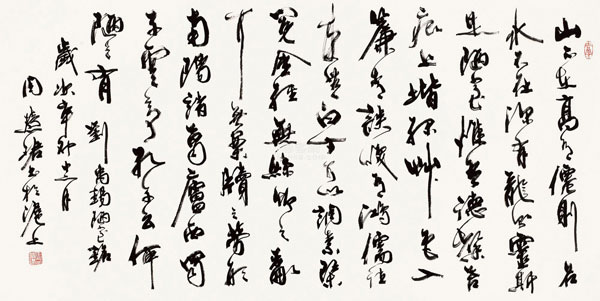 山不在高有僊則名
水不在深有龍則靈斯
是陋室惟吾德馨苔
痕上堦緑艸色入
簾青談笑有鴻儒往
来無白丁可以調素琴
閲金經無絲竹之亂
耳無案牘之勞形
南陽諸葛廬西蜀
子雲亭孔子云何
陋之有 劉禹錫陋室銘
歲次月
周慧珺書於滬上